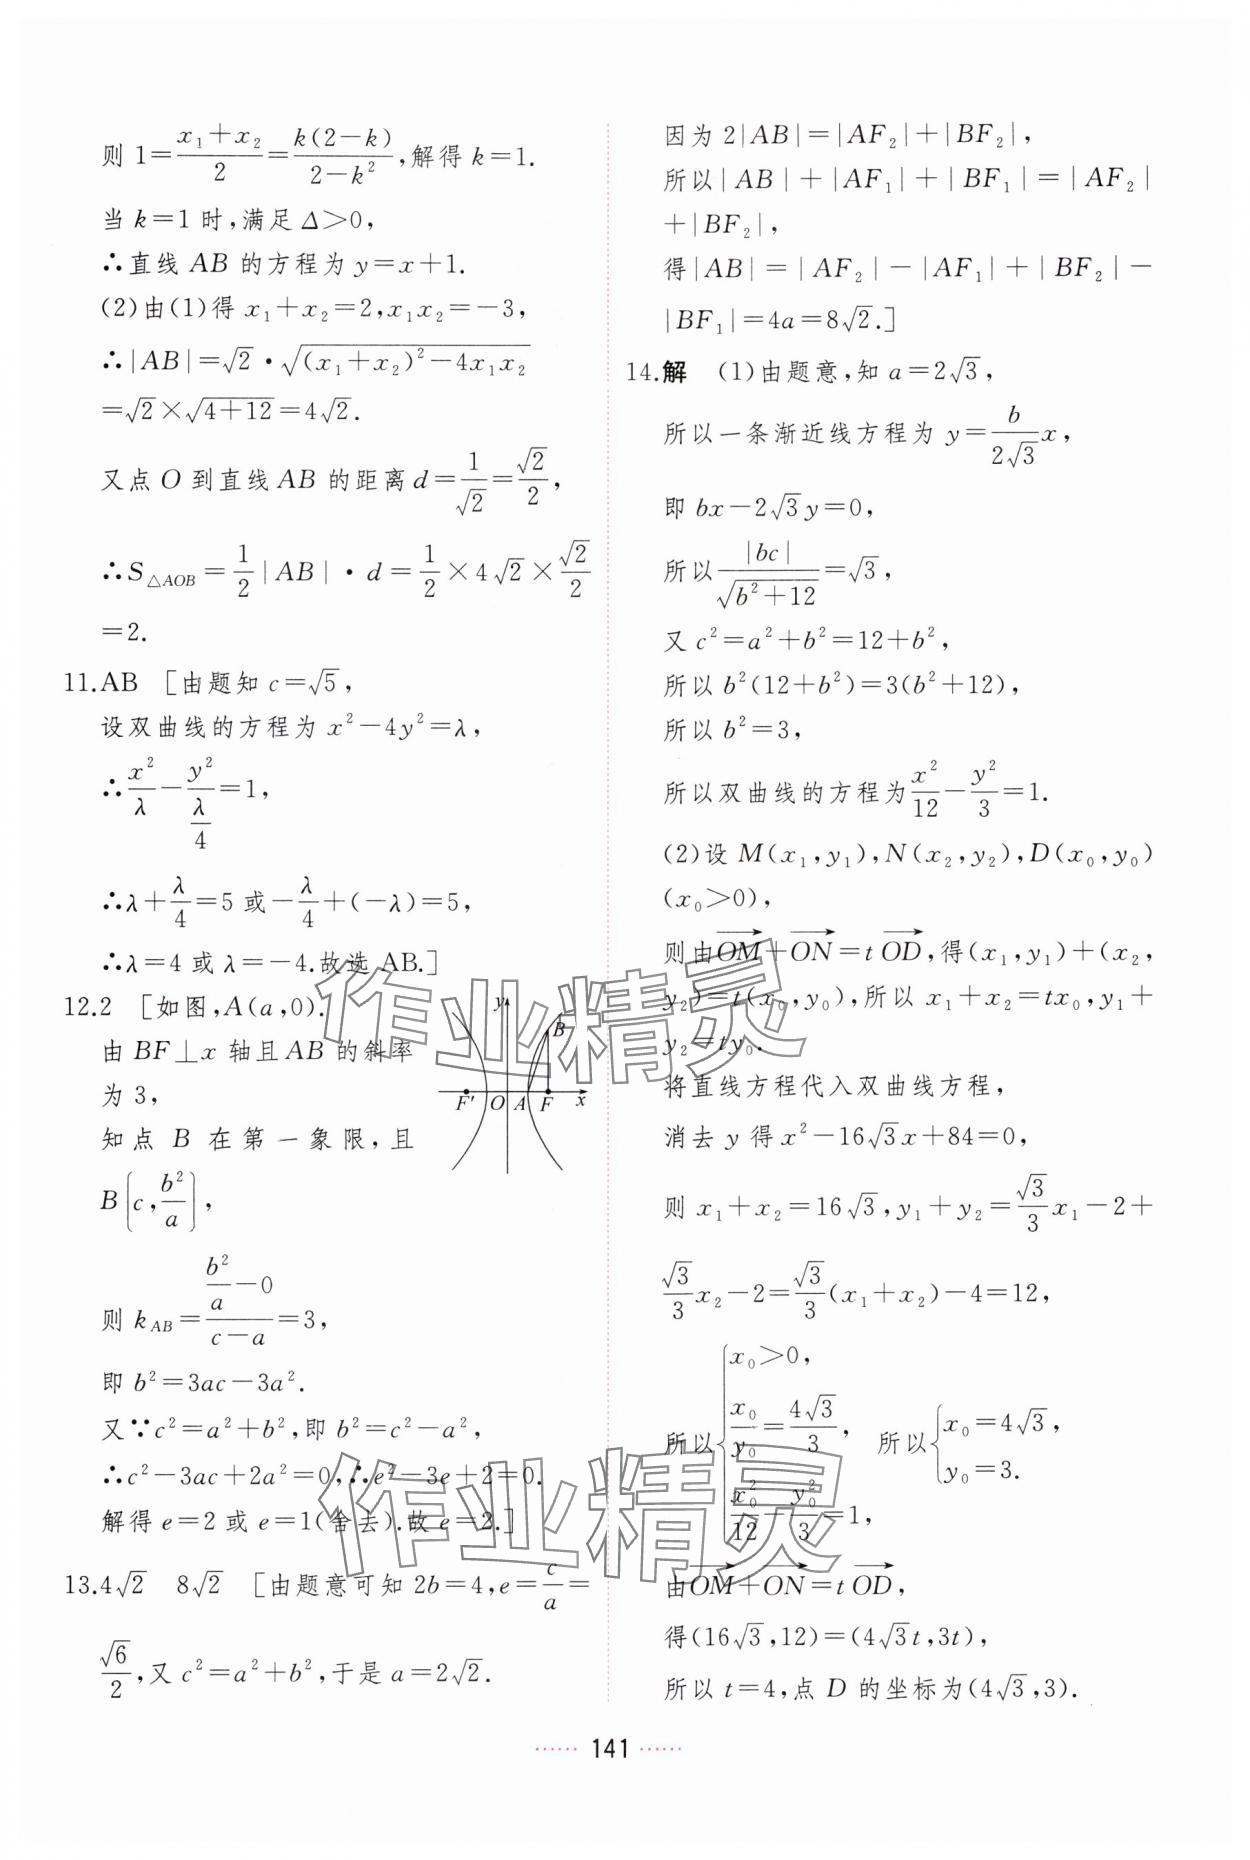 则 1=\frac{x₁+x₂}{2}=\frac{k(2-k)}{2-k²},解得 k=1.
当 k=1 时,满足 Δ>0,
∴直线 AB 的方程为 y=x+1.
(2)由(1)得 x₁+x₂=2,x₁x₂=-3,
∴|AB|=√2·√((x₁+x₂)²-4x₁x₂)
=√2×√(4+12)=4√2.
又点 O 到直线 AB 的距离 d=\frac{1}{√2}=\frac{√2}{2},
∴S△AOB=\frac{1}{2}|AB|·d=\frac{1}{2}×4√2×\frac{√2}{2}
=2.
11.AB [由题知 c=√5,
设双曲线的方程为 x²-4y²=λ,
∴\frac{x²}{λ}-\frac{y²}{\frac{λ}{4}}=1,
∴λ+\frac{λ}{4}=5 或-\frac{λ}{4}+(-λ)=5,
∴λ=4 或 λ=-4.故选 AB.]
12.2 [如图,A(a,0).
由 BF⊥x 轴且 AB 的斜率
为 3,
知点 B 在第一象限,且
B(c,\frac{b²}{a}),
y
B
F′ O A F x
则 k_{AB}=\frac{\frac{b²}{a}-0}{c-a}=3,
即 b²=3ac-3a².
又∵c²=a²+b²,即 b²=c²-a²,
∴c²-3ac+2a²=0,∴e²-3e+2=0.
解得 e=2 或 e=1(舍去).故 e=2.]
13.4√2 8√2 [由题意可知 2b=4,e=\frac{c}{a}=
\frac{√6}{2},又 c²=a²+b²,于是 a=2√2.
因为 2|AB|=|AF₂|+|BF₂|,
所以|AB|+|AF₁|+|BF₁|=|AF₂|
+|BF₂|,
得|AB|=|AF₂|-|AF₁|+|BF₂|-
|BF₁|=4a=8√2.]
14.解 (1)由题意,知 a=2√3,
所以一条渐近线方程为 y=\frac{b}{2√3}x,
即 bx-2√3y=0,
所以\frac{|bc|}{√(b²+12)}=√3,
又 c²=a²+b²=12+b²,
所以 b²(12+b²)=3(b²+12),
所以 b²=3,
所以双曲线的方程为\frac{x²}{12}-\frac{y²}{3}=1.
(2)设 M(x₁,y₁),N(x₂,y₂),D(x₀,y₀)
(x₀>0),
则由\overrightarrow{OM}+\overrightarrow{ON}=t\overrightarrow{OD},得(x₁,y₁)+(x₂,
y₂)=t(x₀,y₀),所以 x₁+x₂=tx₀,y₁+
y₂=ty₀.
将直线方程代入双曲线方程,
消去 y 得 x²-16√3x+84=0,
则 x₁+x₂=16√3,y₁+y₂=\frac{√3}{3}x₁-2+
\frac{√3}{3}x₂-2=\frac{√3}{3}(x₁+x₂)-4=12,
所以{x₀>0, \frac{x₀}{y₀}=\frac{4√3}{3}, \frac{x₀²}{12}-\frac{y₀²}{3}=1, 所以{x₀=4√3, y₀=3.
由\overrightarrow{OM}+\overrightarrow{ON}=t\overrightarrow{OD},
得(16√3,12)=(4√3t,3t),
所以 t=4,点 D 的坐标为(4√3,3).
作业精灵
作业精灵
······ 141 ······